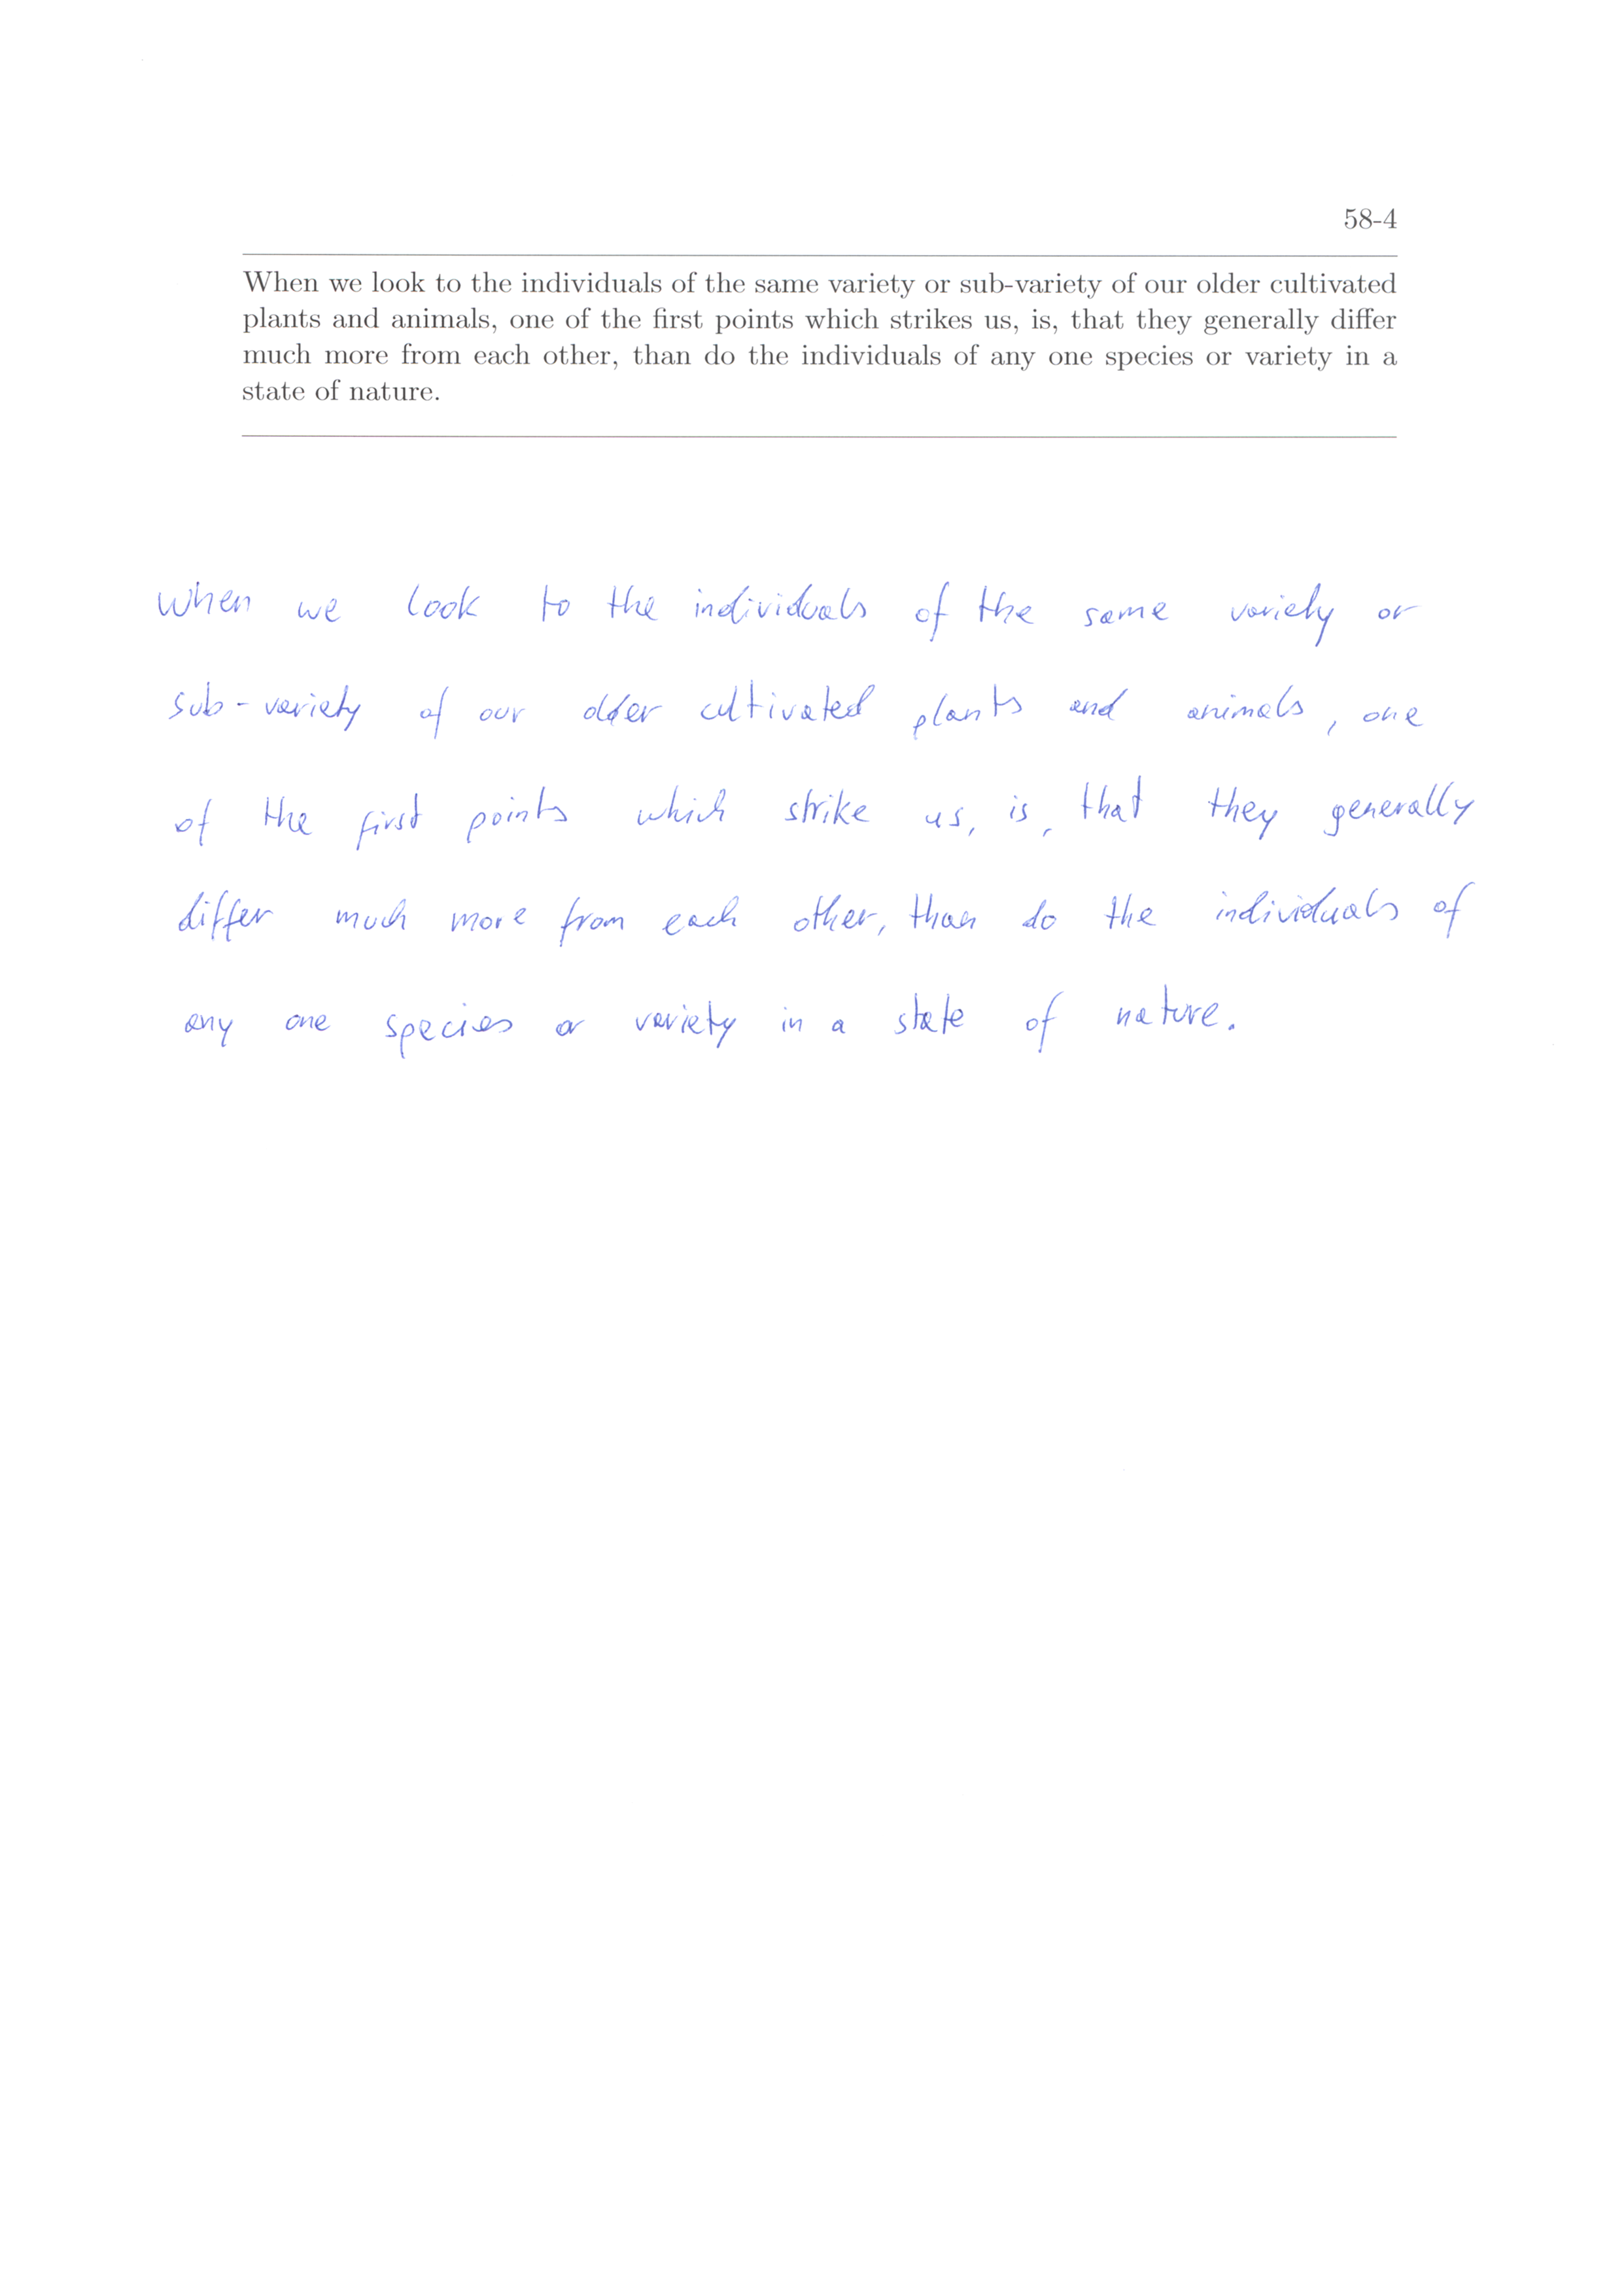 58-4
When we look to the individuals of the same variety or sub-variety of our older cultivated
plants and animals, one of the first points which strikes us, is, that they generally differ
much more from each other, than do the individuals of any one species or variety in a
state of nature.
When we look to the individuals of the same variety or
sub-variety of our older cultivated plants and animals, one
of the first points which strike us, is, that they generally
differ much more from each other, than do the individuals of
any one species or variety in a state of nature.